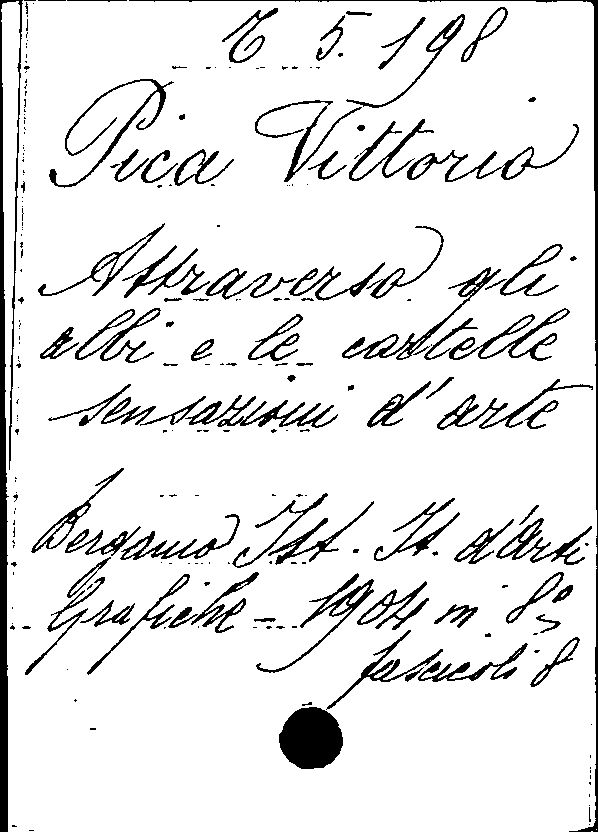 5. 198
Pica Vittorio
Attraverso gli
albi e le cartelle
sensazioni d'arte
Bergamo Ist. It. d'Arti
Grafiche - 1904 in 8º
fascicoli 8